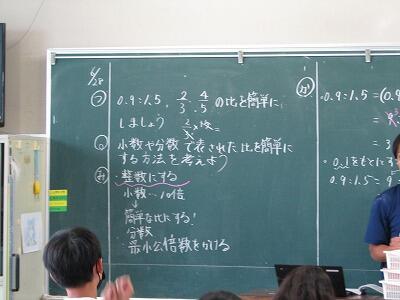 6/28
つ 0.9:1.5, 2/3:4/5 の比を簡単に
しましょう
め 小数や分数で表された比を簡単に
する方法を考えよう
み ・整数にする
小数…10倍
↓
簡単な比にする!
分数
・最小公倍数をかける
か
0.9:1.5=(0.9
=
= 3
0.1をもとにす
0.9:1.5=9